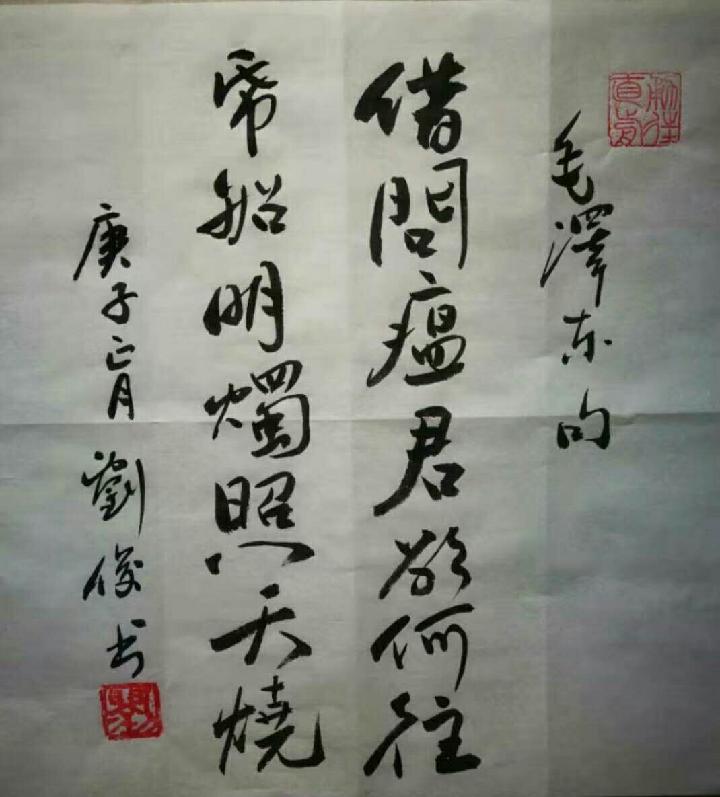 毛澤东句
借問瘟君欲何往
帋船明燭照天燒
庚子正月劉俊书